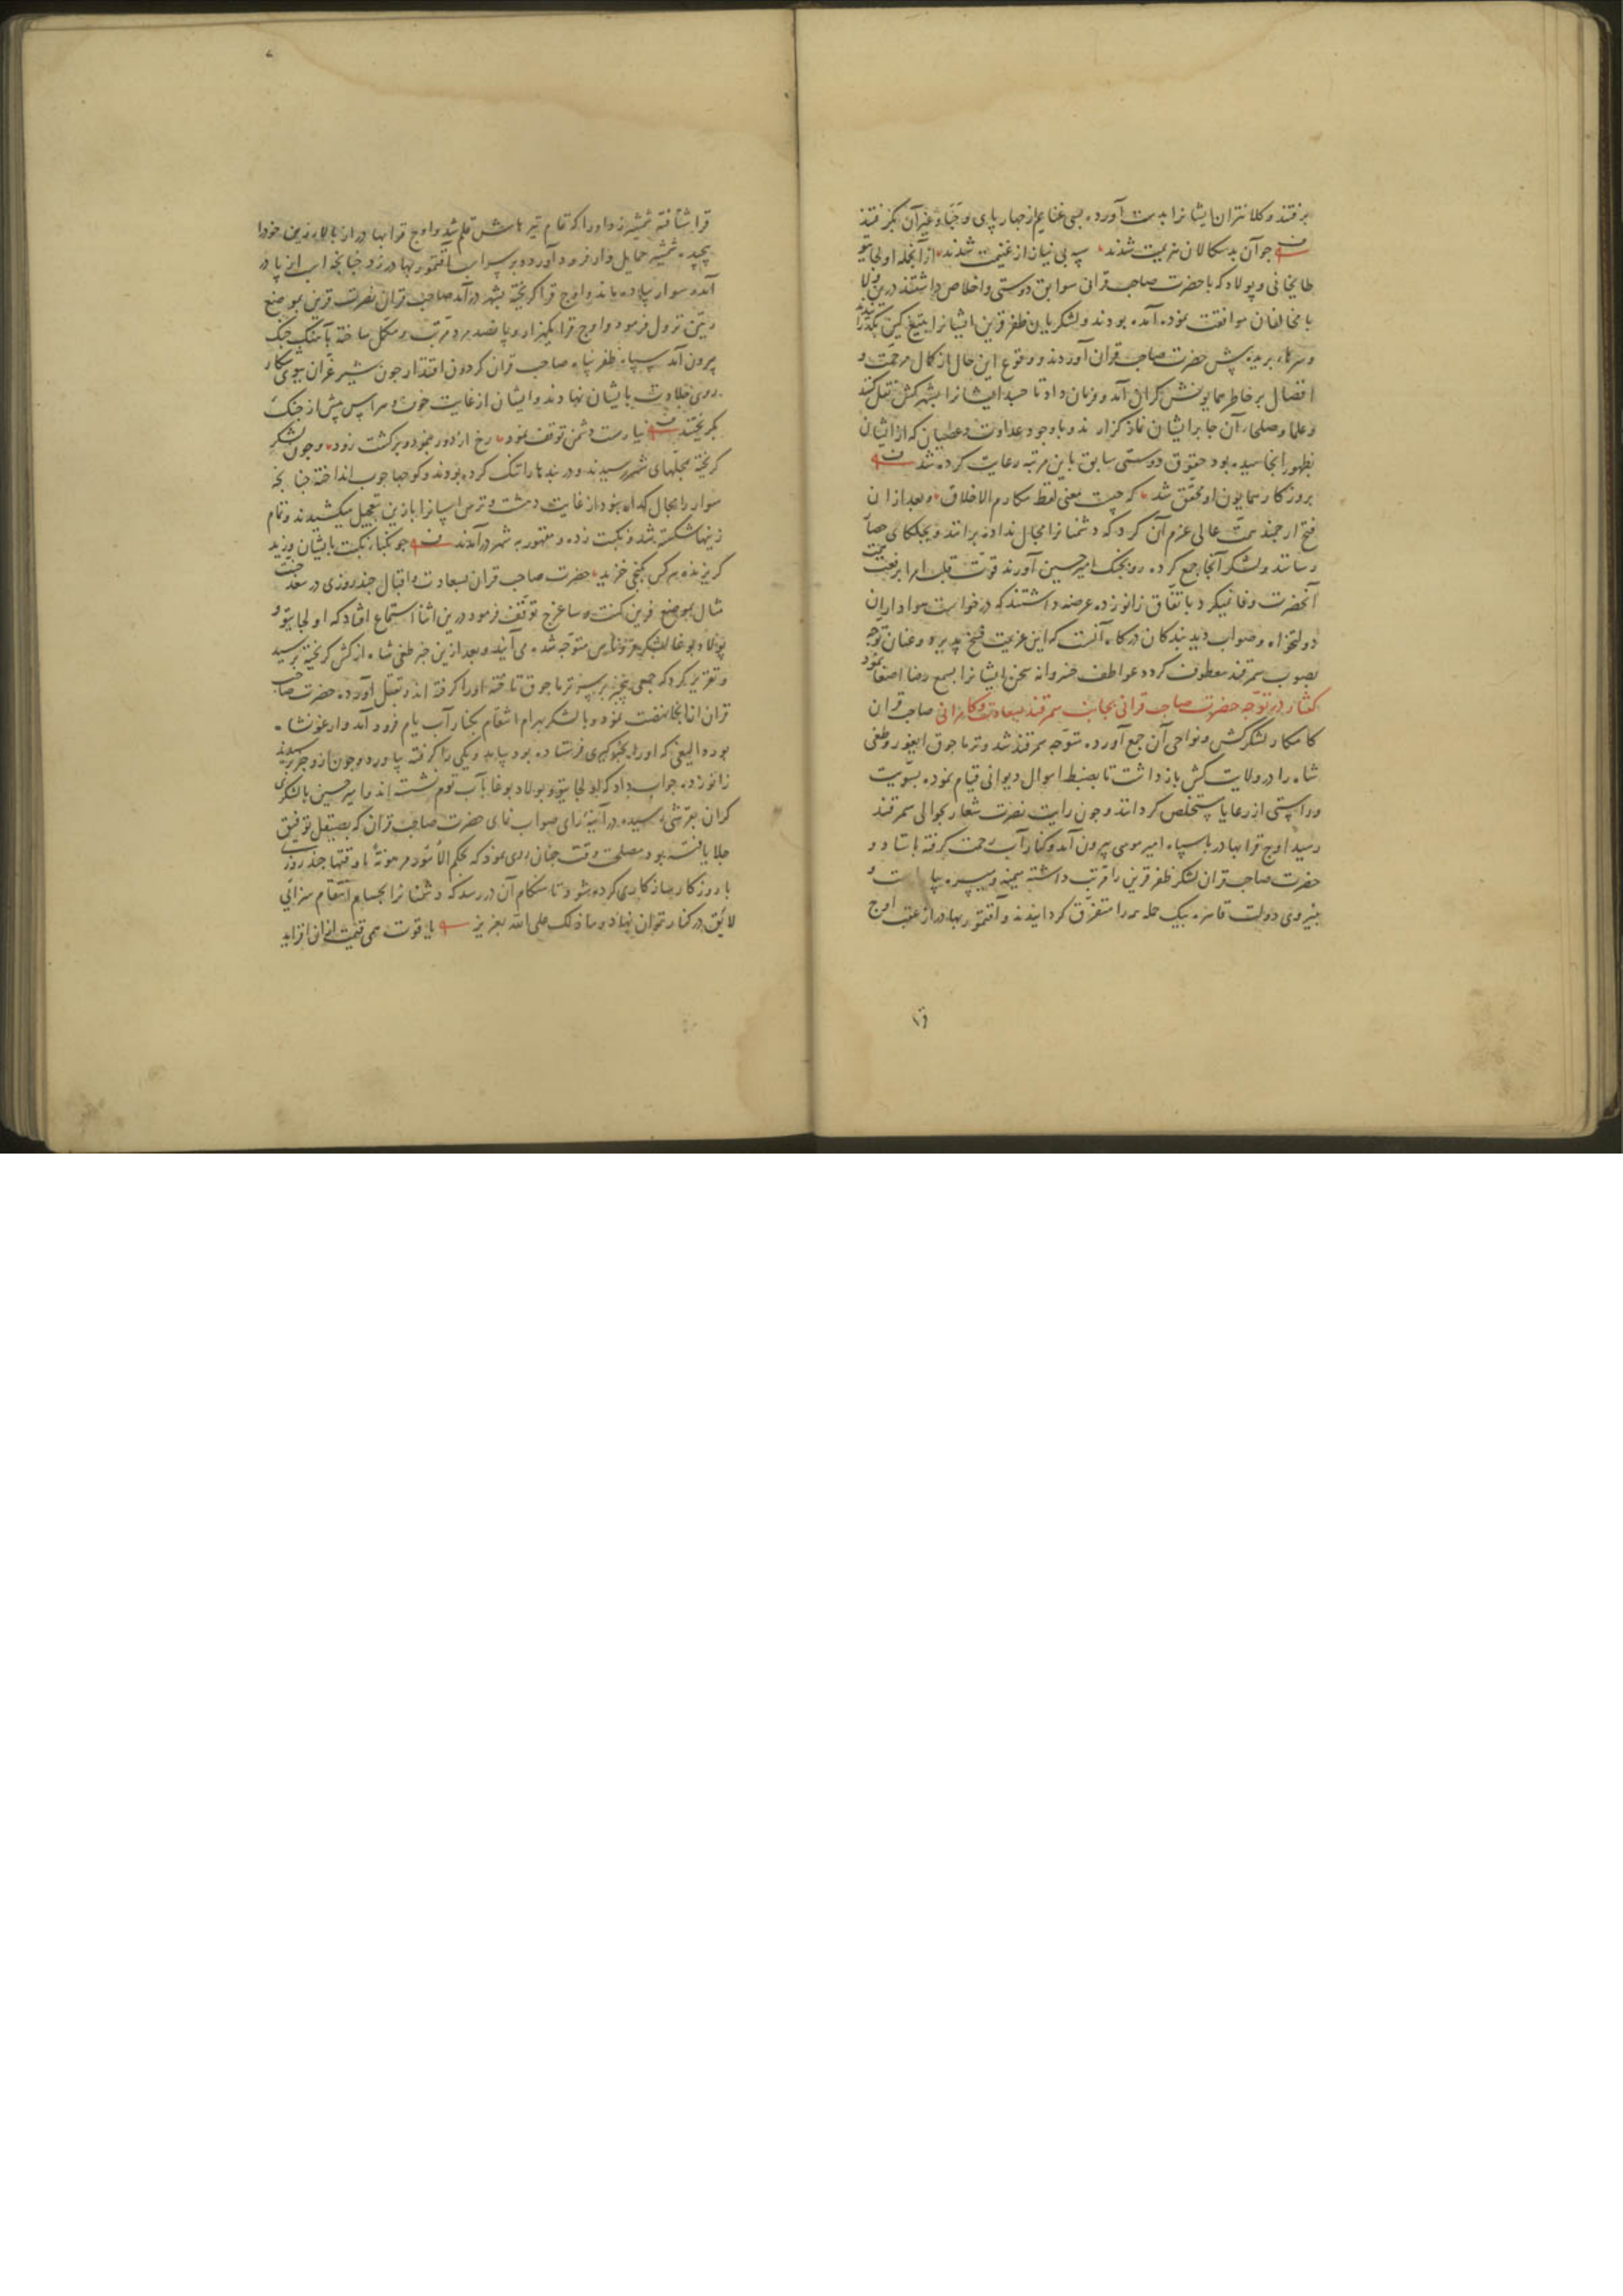 برفتند و کلانتران ایشانرا بدست آورده بسی غنایم از چهار پای و جبا و غیر آن بگرفتند
چو آن بدسکالان هزیمت شدند سپه بی نیاز از غنیمت شدند از آنجمله اولجایتو
طایخانی و پولاد که با حضرت صاحب قرانی سوابق دوستی و اخلاص داشتند درین ولا
با مخالفان موافقت نموده آمده بودند و لشکریان ظفر قرین ایشانرا بتیغ کین بگذرانیدند
و سرها بریده پیش حضرت صاحب قران آوردند و وقوع این حال از کمال مرحمت و
افضال بر خاطر همایونش گران آمد و فرمان داد تا جسد ایشانرا بشهر کش نقل کنند
و علما و صلحاء آن جا بر ایشان نماز گزارند و با وجود عداوت و عصیان که از ایشان
بظهور انجامیده بود حقوق دوستی سابق باین مرتبه رعایت کرده شد
بروزگار همایون او محقق شد که چیست معنی لفظ مکارم الاخلاق و بعد از ان
فتح ارجمند همت عالی عزم آن کرد که دشمنانرا مجال نداده برانند و بجلکای حصار
رسانند و لشکر آنجا جمع کرده رو بجنک امیر حسین آورند قوت قلب امرا برفعت همت
آنحضرت وفا نمیکرد باتفاق زانو زده عرضه داشتند که درخواست هواداران
دولتخواه و صواب دید بندکان درکاه آنست که این عزیمت فسخ پذیرد و عنان توجه
بصوب سمرقند معطوف گردد عواطف خسروانه سخن ایشانرا بسمع رضا اصغا نمود
گفتار در توجه حضرت صاحب قرانی بجانب سمرقند بسعادت و کامرانی صاحب قران
کامکار لشکر کش و نواحی آن جمع آورده متوجه سمرقند شد و ترماجوق ایغور و طغی
شاه را در ولایت کش بازداشت تا بضبط اموال دیوانی قیام نموده بسویت
و راستی از رعایا مستخلص کردانند و چون رایت نصرت شعار بحوالی سمرقند
رسید اوج قرا بهادر با سپاه امیر موسی بیرون آمد و کنار آب رحمت کرفته باستاد و
حضرت صاحب قران لشکر ظفر قرین را مرتب داشته میمنه و میسره بیاراست و
بنیروی دولت قاهره بیک حمله همه را متفرق کردانیدند و آقتمور بهادر از عقب اوج
قرا شتافته شمشیر زد او را که تمام تیرهاش قلم شد و اوج قرا بهادر از بالاء زین خود را
پیچیده شمشیر حمایل وار فرود آورد و بر سر اسب آقتمور بهادر زد چنانچه اسب از پا در
آمد و سوار پیاده ماند و اوج قرا کریخته بشهر در آمد صاحب قران نصرت قرین بموضع
رتین نزول فرمود و اوج قرا یکهزار و پانصد مرد مرتب و مکمل ساخته بآهنگ جنگ
بیرون آمد سپاه ظفر پناه صاحب قران کردون اقتدار چون شیر غران بسوی شکار
روی جلادت بایشان نهادند و ایشان از غایت خوف و هراس پیش از جنک
بکریختند نیارست دشمن توقف نمود رخ از دور بنمود و برکشت زود و چون لشکر
کریخته بمحلهای شهر رسیدند و دربندها را تنک کرده بودند و کوچها چوب انداخته چنانچه
سوار را مجال گذار نبود از غایت دهشت و ترس اسپانرا با زین بتعجیل میکشیدند و تمام
زینها شکسته شد و نکبت زده و مقهور به شهر در آمدند چو نکباء نکبت بایشان وزید
کریزنده هر کس بکنجی خزید حضرت صاحب قران بسعادت و اقبال چند روزی در سغد جنت
مثال بموضع فرین کنت و ساغرج توقف فرمود درین اثنا استماع افتاد که اولجایتو و
پولاد بوغا لشکر متوجه شده می آیند و بعد ازین خبر طغی شاه از کش کریخته برسید
و تقریر کرد که جمعی بخبر بر سر ترماجوق تاخته او را کرفته اند و بقتل آورده حضرت صاحب
قران از آنجا نهضت نمود و با لشکر بهرام انتقام بکنار آب یام فرود آمد و ارغونشاه
بوردالیغی که او را بخبرگیری فرستاده بود بیامد و یکی را کرفته بیاورد و چون ازو خبر پرسیدند
زانو زده جواب داد که اولجایتو و پولاد بوغا بآب توم نشسته اند و امیر حسین با لشکری
گران بقرشی رسیده در آیینه رای صواب نمای حضرت صاحب قران که بصیقل توفیق
جلا یافته بود مصلحت وقت چنان روی نمود که بحکم الأمور مرهونة باوقتها چند روزی
با روزگار سازکاری کرده شود تا هنکام آن در رسد که دشمنانرا بحسام انتقام سزایی
لایق در کنار توان نهاد و ما ذلک علی الله بعزیز یاقوت همی قیمت از آن افزاید